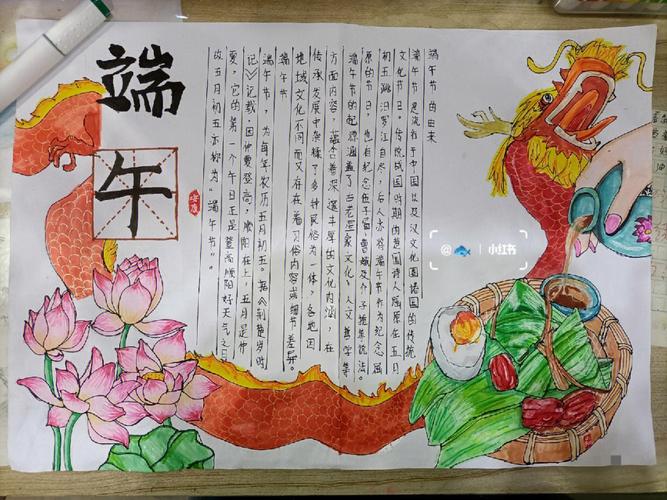 端午
安康
端午节的由来
端午节是流行于中国以及汉文化圈诸国的传统
文化节日。传统战国时期的楚国诗人屈原在五月
初五跳汨罗江自尽，后人亦将端午节作为纪念屈
原的节日，也有纪念伍子胥、曹娥及介子推等说法。
端午节的起源涵盖了古老星象文化、人文哲学等
方面内容，蕴含着深邃丰厚的文化内涵，在
传承发展中杂糅了多种民俗为一体，各地因
地域文化不同而又存在着习俗内容或细节差异。
端午节
端午节，为每年农历五月初五。据《荆楚岁时
记》记载，因仲夏登高，顺阳在上，五月是仲
夏，它的第一个午日正是登高顺阳好天气之日，
故五月初五亦称为“端午节”。
@🐟 | 小红书